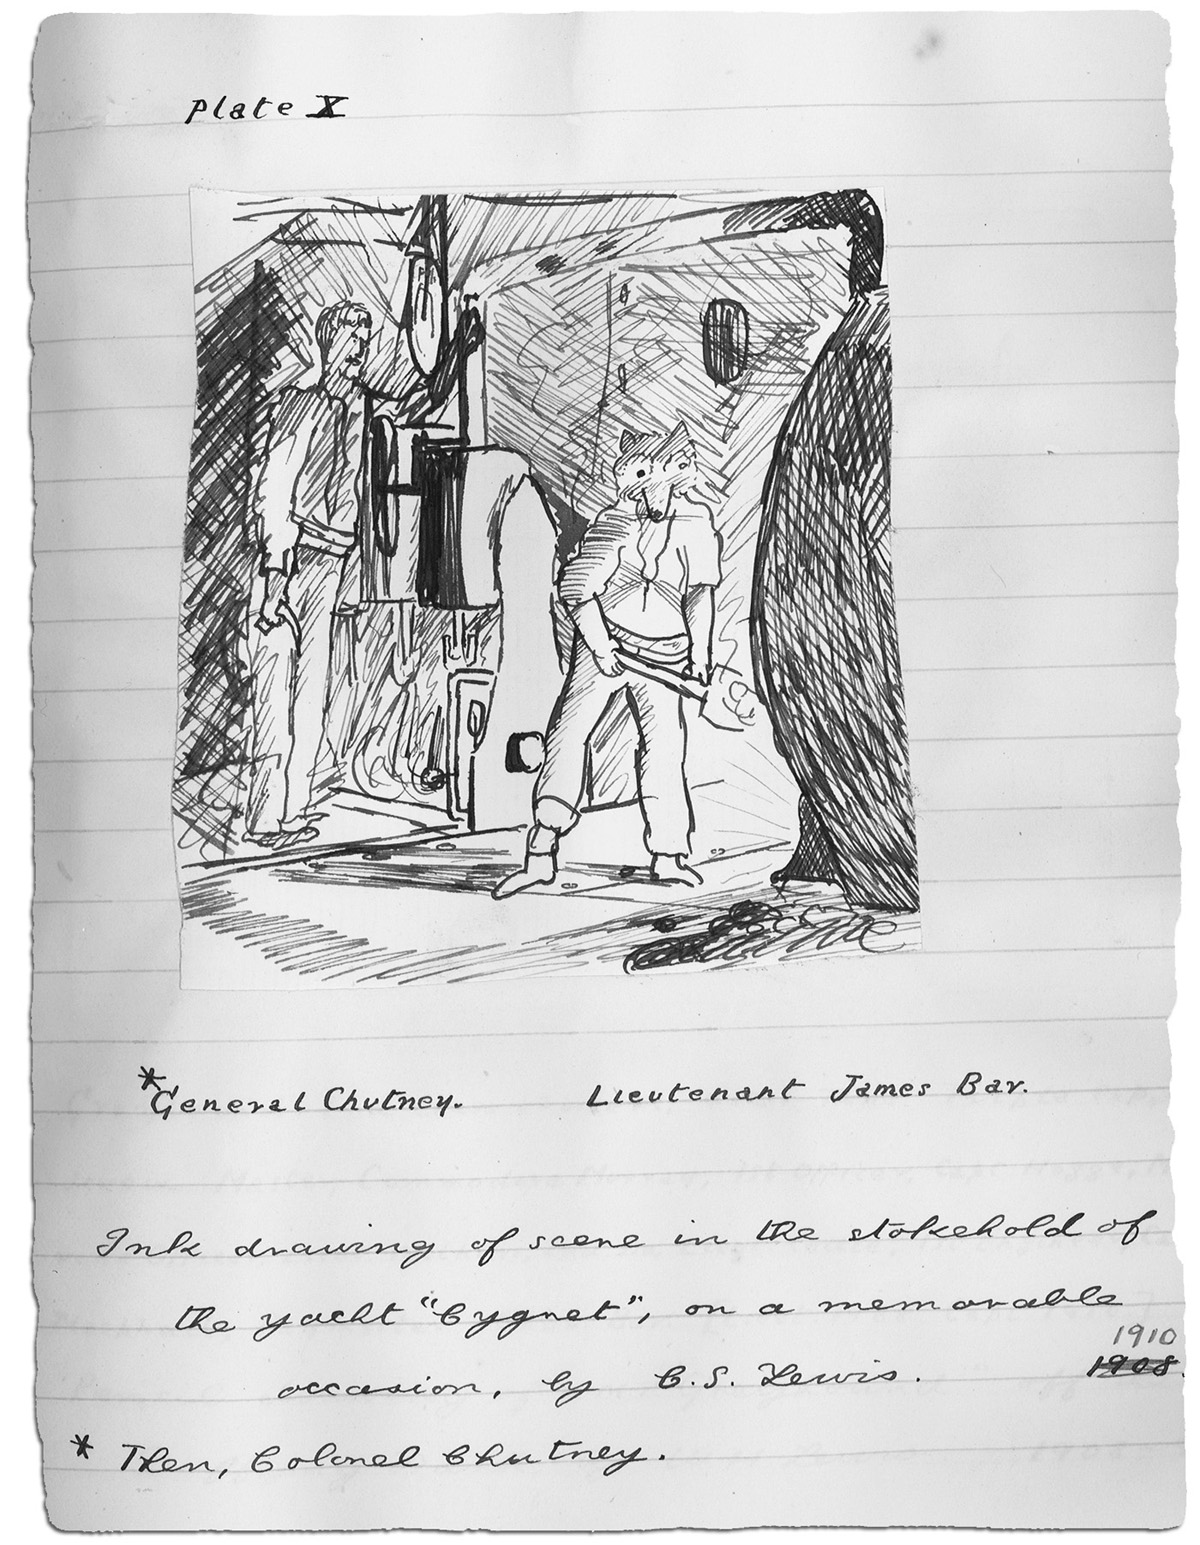 Plate X
*General Chutney. Lieutenant James Bar.
Ink drawing of scene in the stokehold of
the yacht "Cygnet", on a memorable
1910
occasion, by C.S. Lewis. 1908.
* Then, Colonel Chutney.